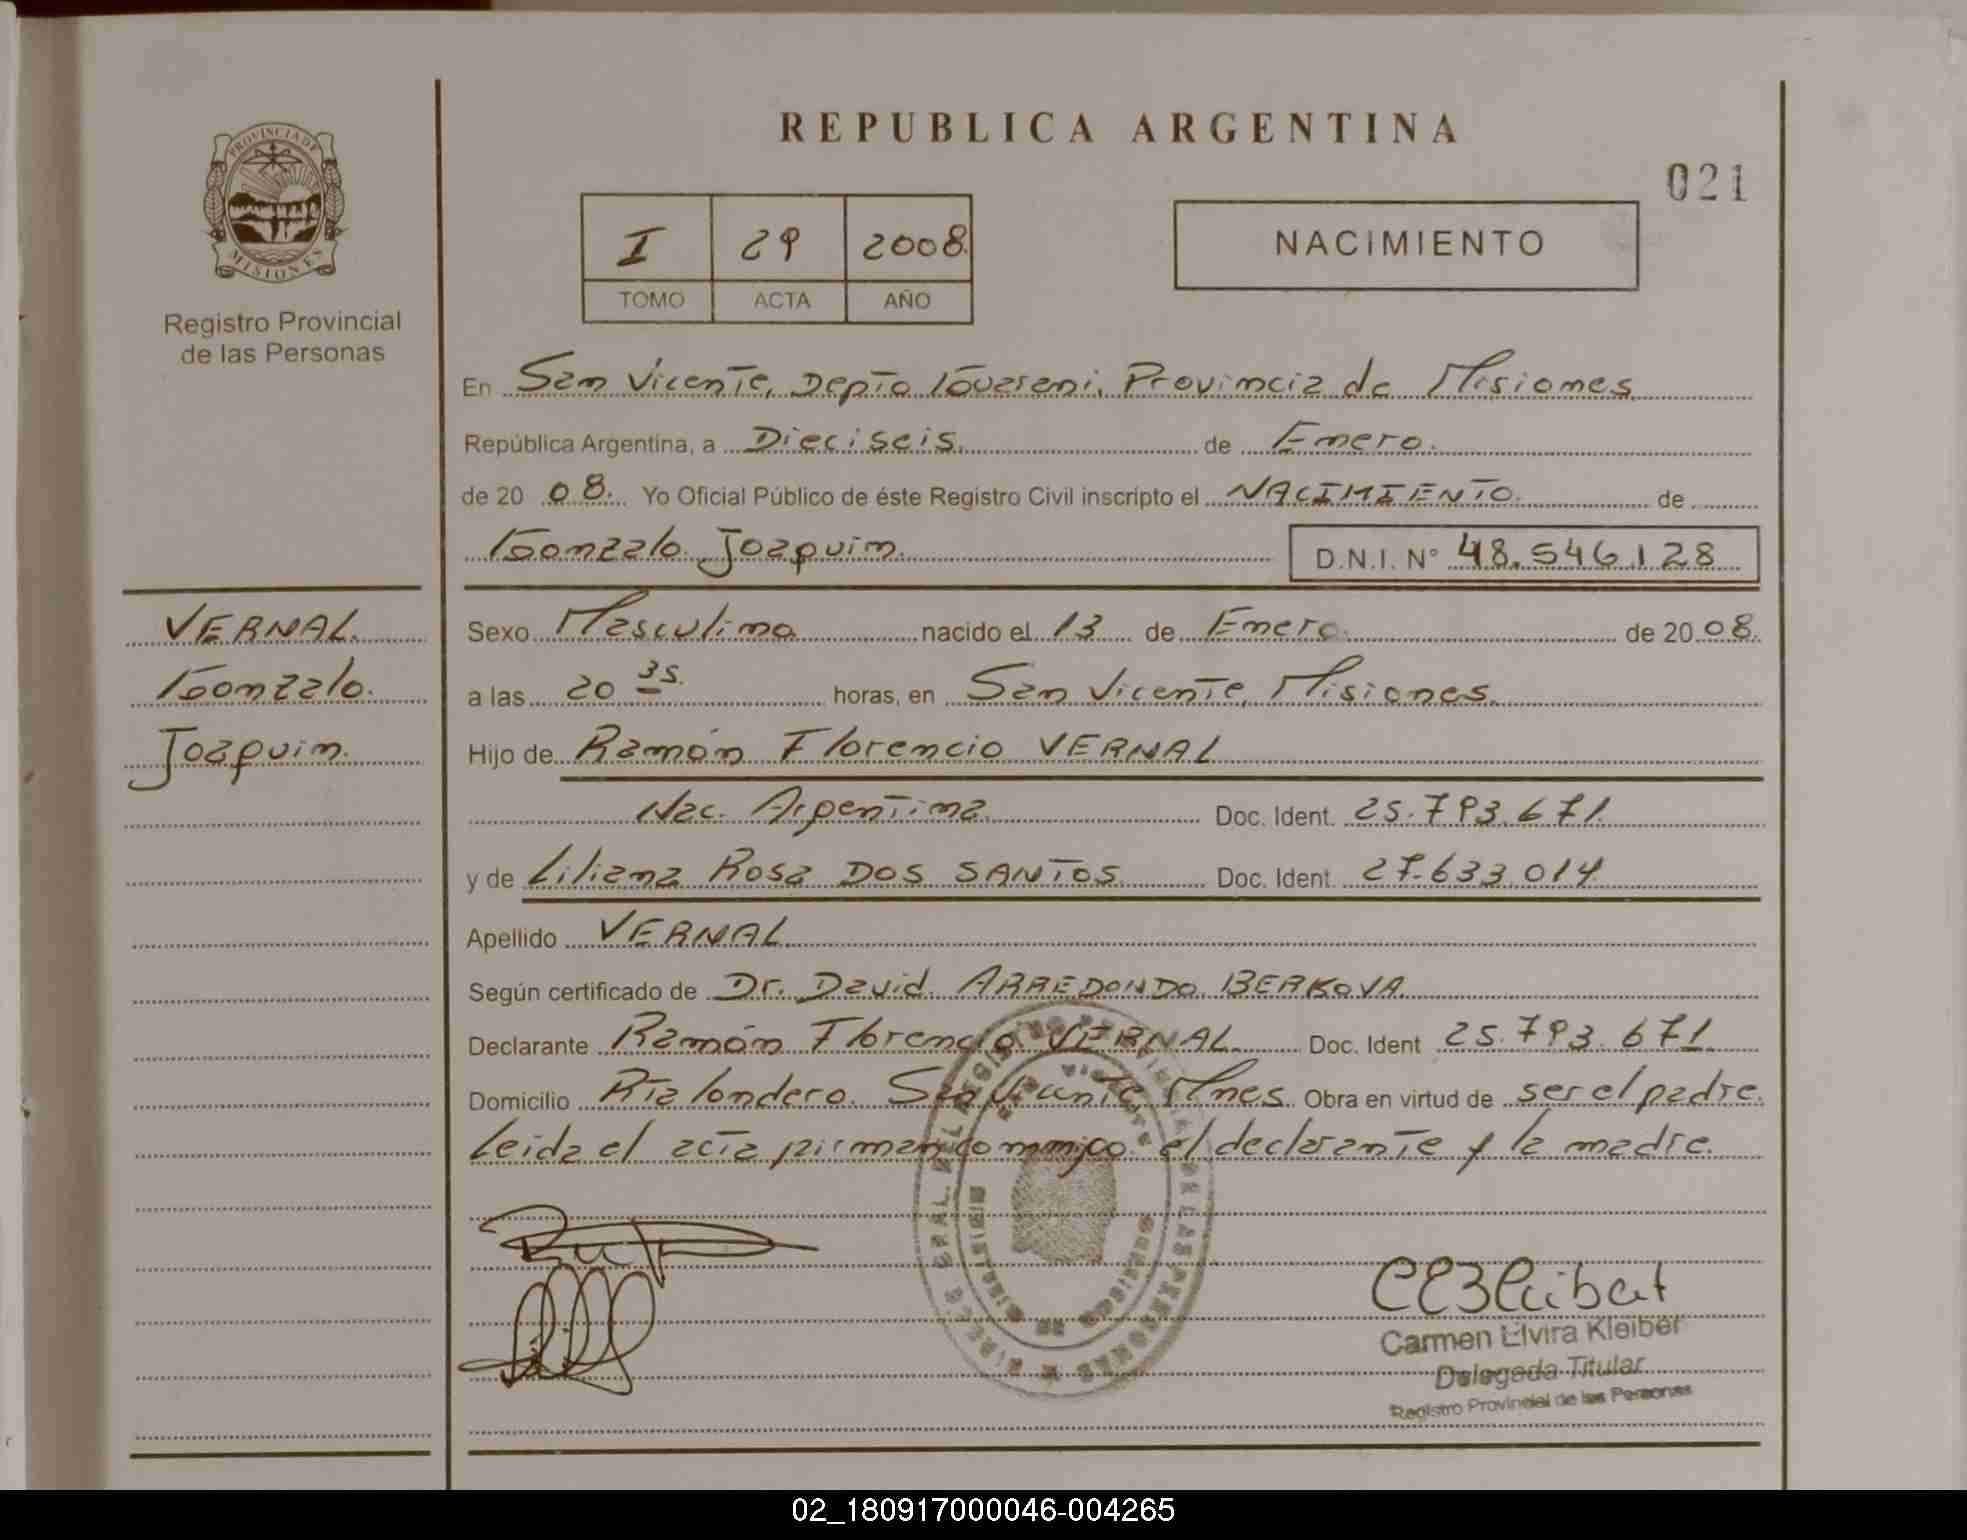 REPUBLICA ARGENTINA
021
PROVINCIA DE
MISIONES
Registro Provincial
de las Personas
I 29 2008.
TOMO ACTA AÑO
NACIMIENTO
En San Vicente, Depto Guarani, Provincia de Misiones
República Argentina, a Dieciseis. de Enero.
de 20 08. Yo Oficial Público de éste Registro Civil inscripto el NACIMIENTO. de
Gonzalo Joaquin. D.N.I. N° 48.546.128
VERNAL
Gonzalo.
Joaquin.
Sexo Masculino nacido el 13 de Enero. de 20 08.
a las 20 35. horas, en San Vicente, Misiones.
Hijo de Ramón Florencio VERNAL
Nac. Argentina. Doc. Ident. 25.793.671.
y de Liliana Rosa DOS SANTOS Doc. Ident. 27.633.014
Apellido VERNAL
Según certificado de Dr. David ARREDONDO BERKOVA.
Declarante Ramón Florencio VERNAL Doc. Ident 25.793.671.
Domicilio Rta londero. San Vicente, Mnes. Obra en virtud de ser el padre.
Leida el acta firman conmigo el declarante y la madre.
Carmen Elvira Kleiber
Delegada Titular
Registro Provincial de las Personas
02_180917000046-004265